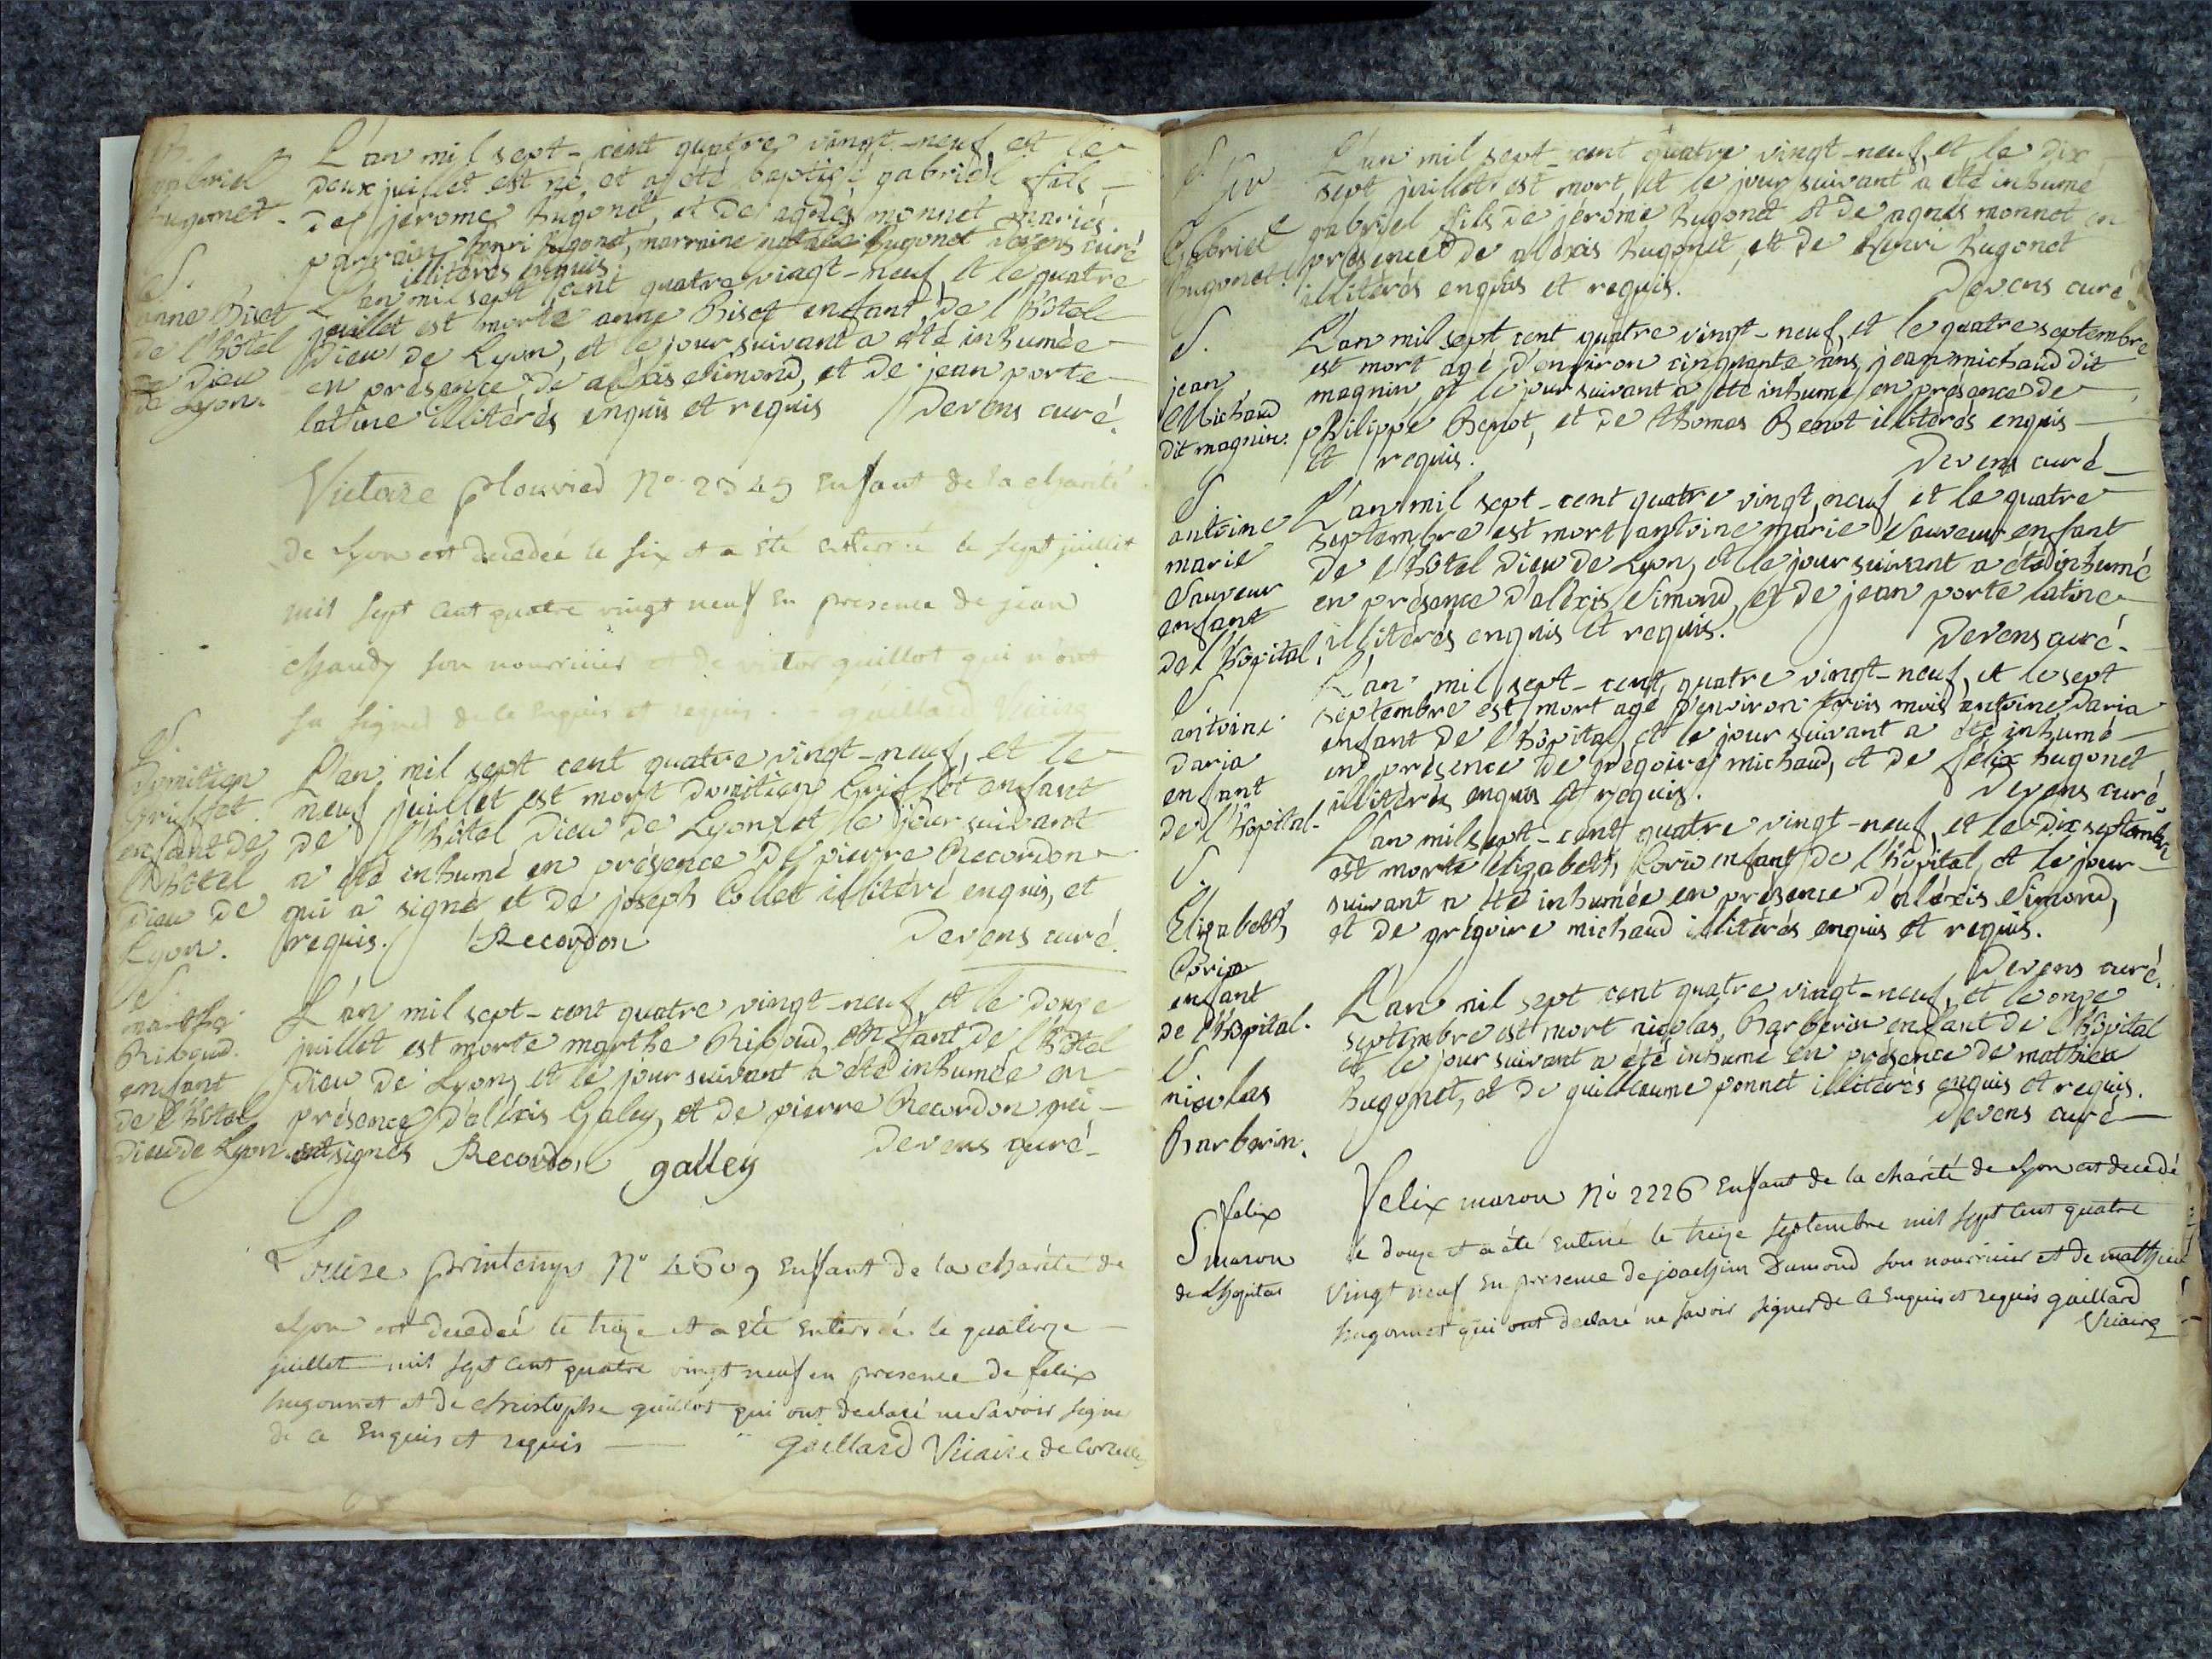 B.
gabriel
hugonet.
L'an mil sept-cent quatre vingt-neuf et le
deux juillet est né, et a été baptisé gabriel fils
de jérome hugonet, et de agnès monnet mariés.
parrain henri hugonet, marraine hugonet devens curé
illitérés enquis.
S.
anne Biset
de l'hôtel
de dieu
de Lyon.
L'an mil sept cent quatre vingt-neuf, et le quatre
juillet est morte anne Biset enfant de l'hôtel
Dieu de Lyon, et le jour suivant a été inhumée
en présence de alexis Simond, et de jean porte
latine illitérés enquis et requis Devens curé.
Victoire plouvied N° 2345 Enfant de la charité
de Lyon est decedée le six et a été enterré le sept juillet
mil sept cent quatre vingt neuf en presence de jean
chaudy son nourricier et de victor guillot qui n'ont
su signer de ce enquis et requis. gaillard Vicaire
S.
Domitien
Griffet.
enfant de
l'hôtel
Dieu de
Lyon.
L'an mil sept cent quatre vingt-neuf, et le
neuf juillet est mort Domitien Griffet enfant
de l'hôtel Dieu de Lyon, et le jour suivant
a été inhumé en présence de pierre Recordon
qui a signé, et de joseph Collet illitéré enquis, et
requis. Recordon Devens curé.
S.
marthe
Riboud.
enfant
de l'hôtel
Dieu de Lyon
L'an mil sept-cent quatre vingt-neuf, et le douze
juillet est morte marthe Riboud, enfant de l'hôtel
Dieu de Lyon, et le jour suivant a été inhumée en
présence d'aléxis Galey, et de pierre Recordon qui
ont signés Recordon galley Devens curé
Louise printemps N° 4609 Enfant de la charité de
Lyon est decedeé le treize et a été enterrée le quatorze
juillet mil sept cent quatre vingt neuf en presence de felix
hugonnet et de christophe guillot qui ont declaré ne savoir signer
de ce Enquis et requis gaillard Vicaire de
S.
Gabriel
hugonet.
L'an mil sept-cent quatre vingt-neuf, et le dix
sept juillet est mort, et le jour suivant a été inhumé
gabriel fils de jérôme hugonet et de agnès monnet en
présence de alexis hugonet, et de henri hugonet
illitérés enquis et requis. Devens curé.
S.
jean
Michaud
dit magnin.
L'an mil sept cent quatre vingt-neuf, et le quatre septembre
est mort agé d'environ cinquante ans, jean michaud dit
magnin, et le jour suivant a été inhumé en présence de
philippe Benot, et de thomas Benot illitérés enquis
et requis. Devens curé
S.
antoine
marie
Sauveur
enfant
de l'hôpital.
L'an mil sept-cent quatre vingt, neuf et le quatre
septembre est mort antoine marie Sauveur enfant
de l'hôtel Dieu de Lyon, et le jour suivant a été inhumé
en présence d'aléxis Simond, et de jean porte latine
illitérés enquis et requis. Devens curé.
S.
antoine
Daria
enfant
de l'hôpital.
L'an mil sept-cent, quatre vingt-neuf, et le sept
septembre est mort agé d'environ trois mois antoine Daria
enfant de l'hôpital, et le jour suivant a été inhumé
en présence de grégoire michaud, et de félix hugonet
illitérés enquis et requis. Devens curé
S.
Elizabeth
Coria
enfant
de l'hôpital.
L'an mil sept-cent quatre vingt-neuf, et le dix septembre
est morte Elizabeth Coria enfant de l'hôpital, et le jour
suivant a été inhumée en présence d'alexis Simond,
et de grégoire michaud illitérés enquis et requis.
Devens curé.
S.
nicolas
Barberin.
L'an mil sept cent quatre vingt-neuf, et le onze
septembre est mort nicolas Barberin enfant de l'hôpital
et le jour suivant a été inhumé en présence de mathieu
hugonet, et de guillaume ponnet illitérés enquis et requis.
Devens curé
felix
S maron
de Lhopital
Felix maron N° 2226 Enfant de la charité de Lyon est decedé
le douze et a été enterré le treize septembre mil sept cent quatre
vingt neuf en presence de joachim Dumond son nourricier et de mathieu
hugonnet qui ont declaré ne savoir signer de ce enquis et requis gaillard
Vicaire